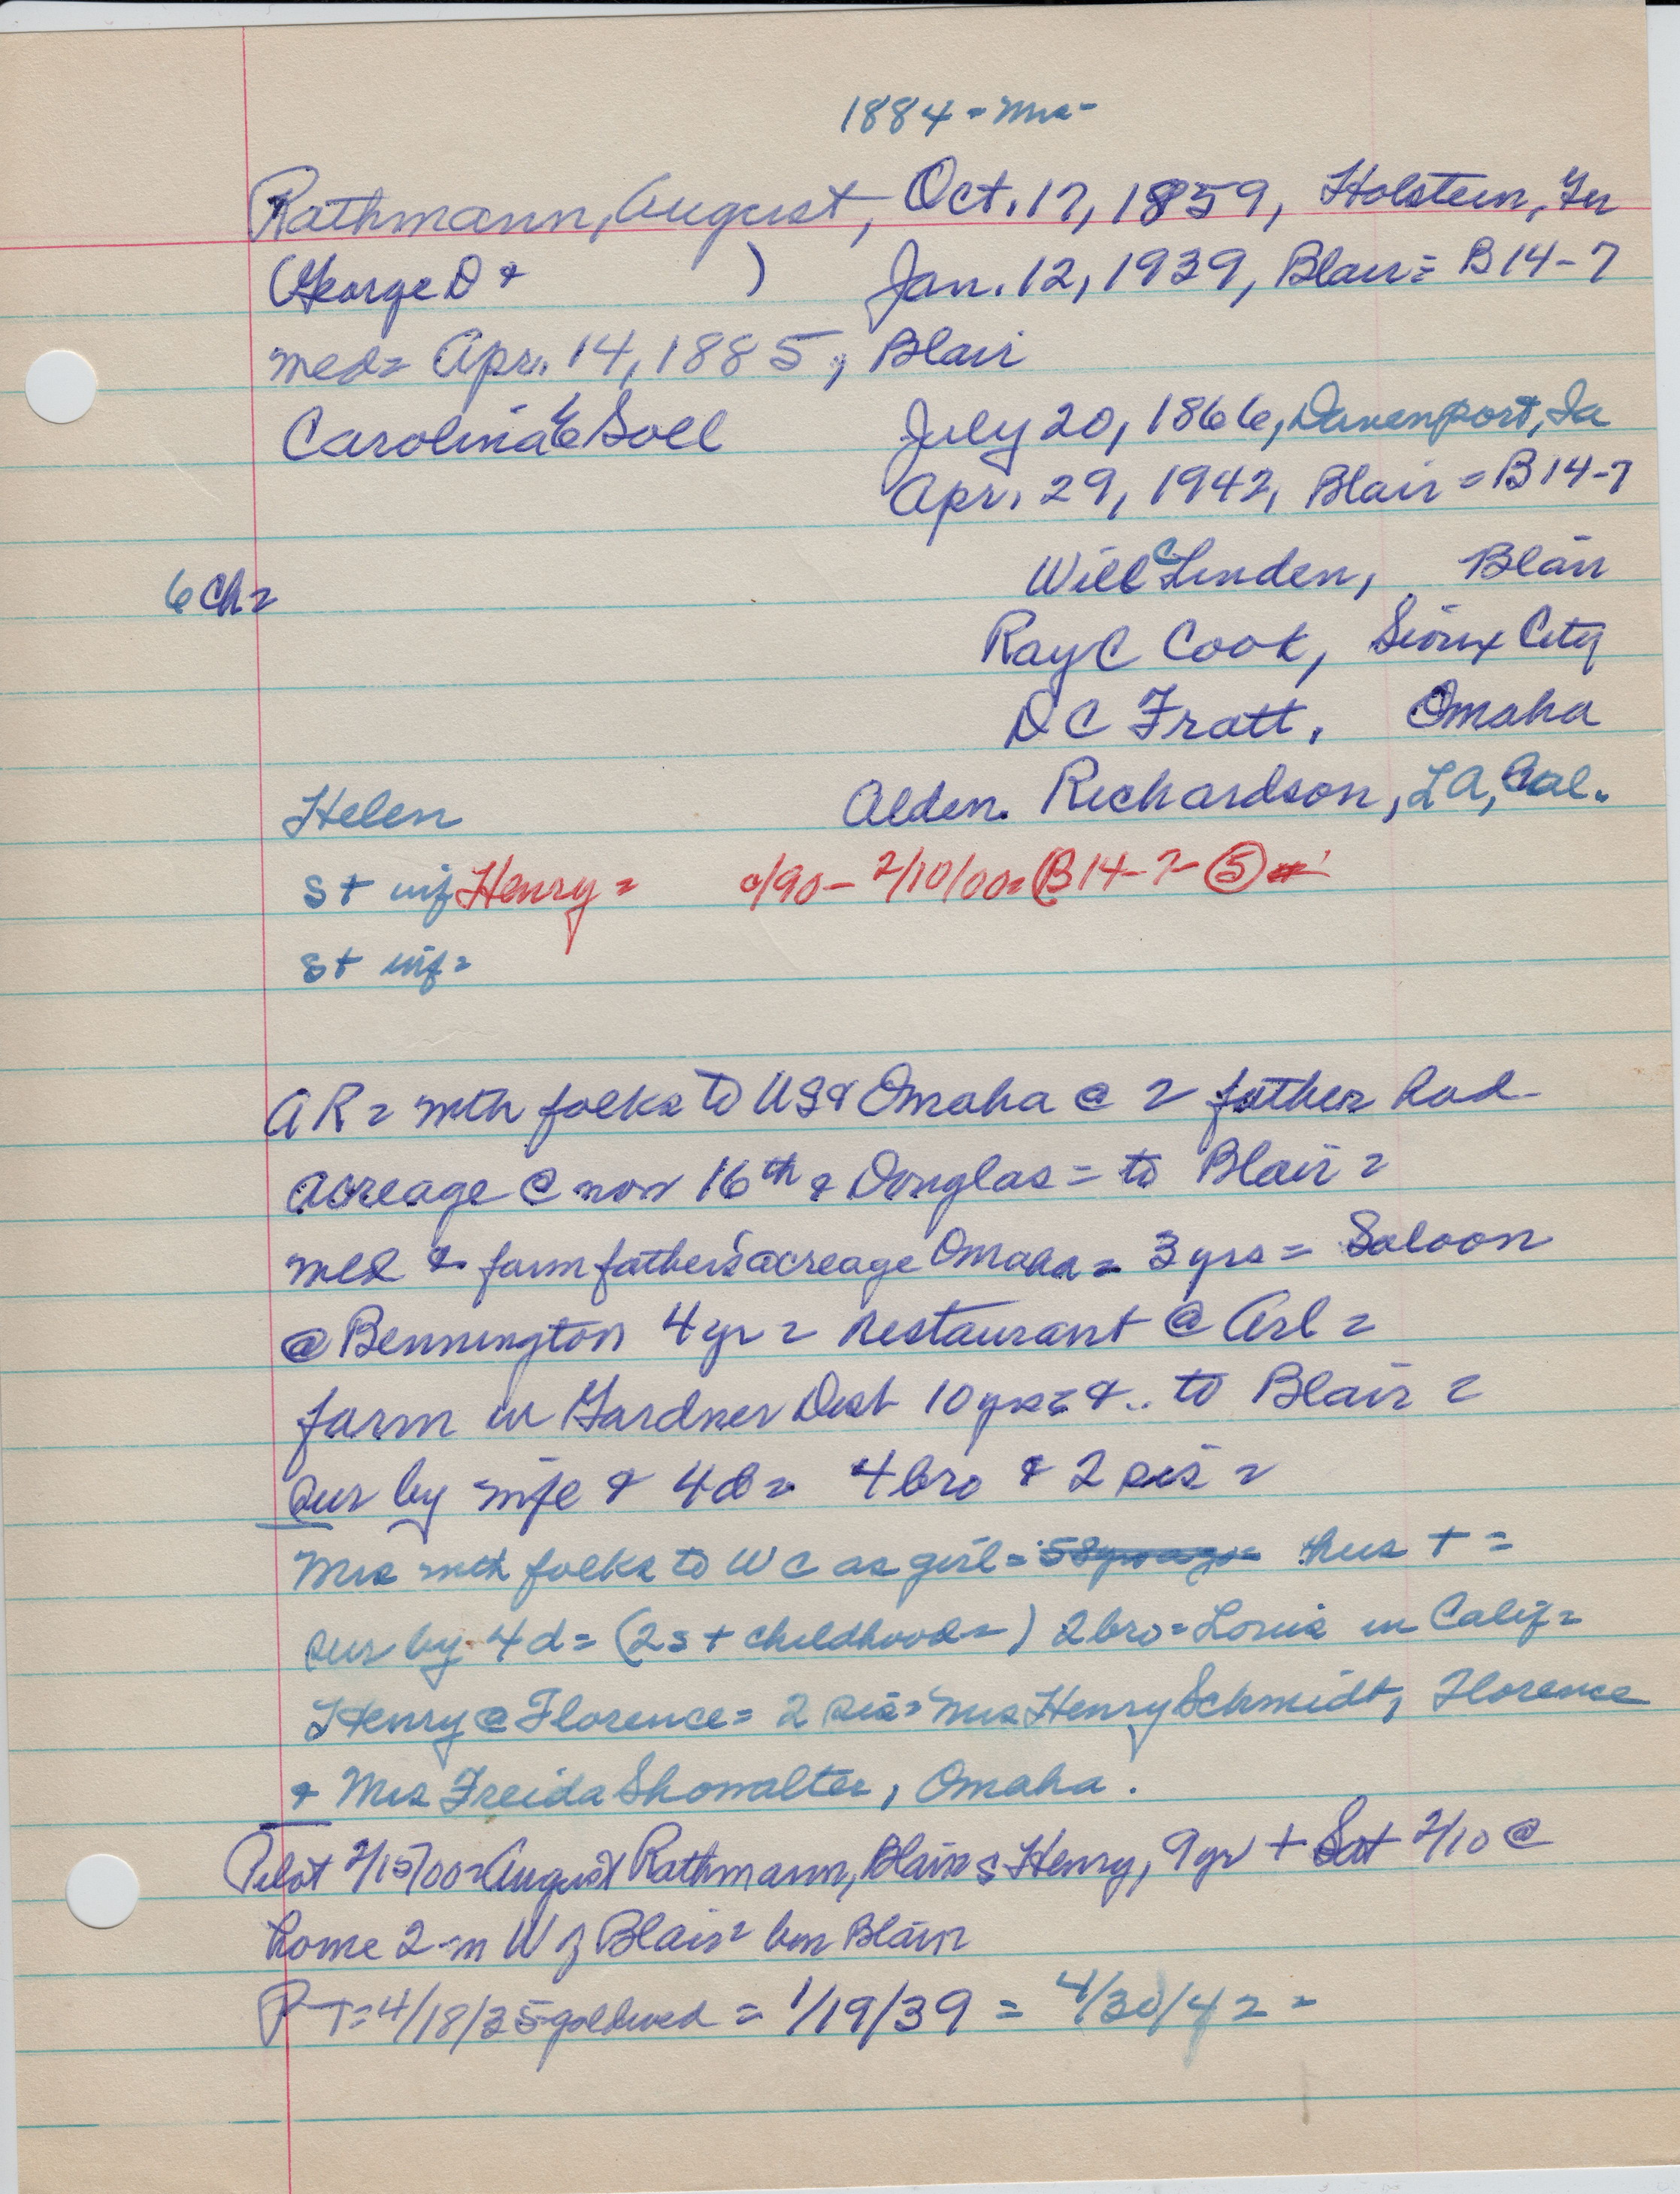 1884 = Mrs =
Rathmann, August, Oct. 17, 1859, Holstein, Ger
(George D & ) Jan. 12, 1939, Blair = B14-7
med = Apr. 14, 1885, Blair
Carolina E Soll July 20, 1866, Davenport, Ia
Apr. 29, 1942, Blair = B14-7
Will C Linden, Blair
6 Ch = Ray C Cook, Sioux City
D C Fratt, Omaha
Helen Alden Richardson, LA, Cal.
s + inf Henry = c/90 - 2/10/00 = B14-7- 5
s + inf =
AR = with folks to US & Omaha @ 2 father had
acreage @ now 16th & Douglas = to Blair =
med & farm father's acreage Omaha = 3 yrs = Saloon
@ Bennington 4 yr = restaurant @ Arl =
farm in Gardner Dist 10 yrs = & .. to Blair =
sur by wife & 4 d = 4 bro & 2 sis =
Mrs with folks to WC as girl = 58 yrs ago = hus + =
sur by 4 d = (2 s + childhood =) 2 bro = Louis in Calif =
Henry @ Florence = 2 sis = Mrs Henry Schmidt, Florence
& Mrs Freida Showalter, Omaha.
Pilot 2/15/00 = August Rathmann, Blair s Henry, 9 yr + Sat 2/10 @
home 2-m W of Blair = brn Blair
P-T = 4/18/35 gold wed = 1/19/39 = 4/30/42 =